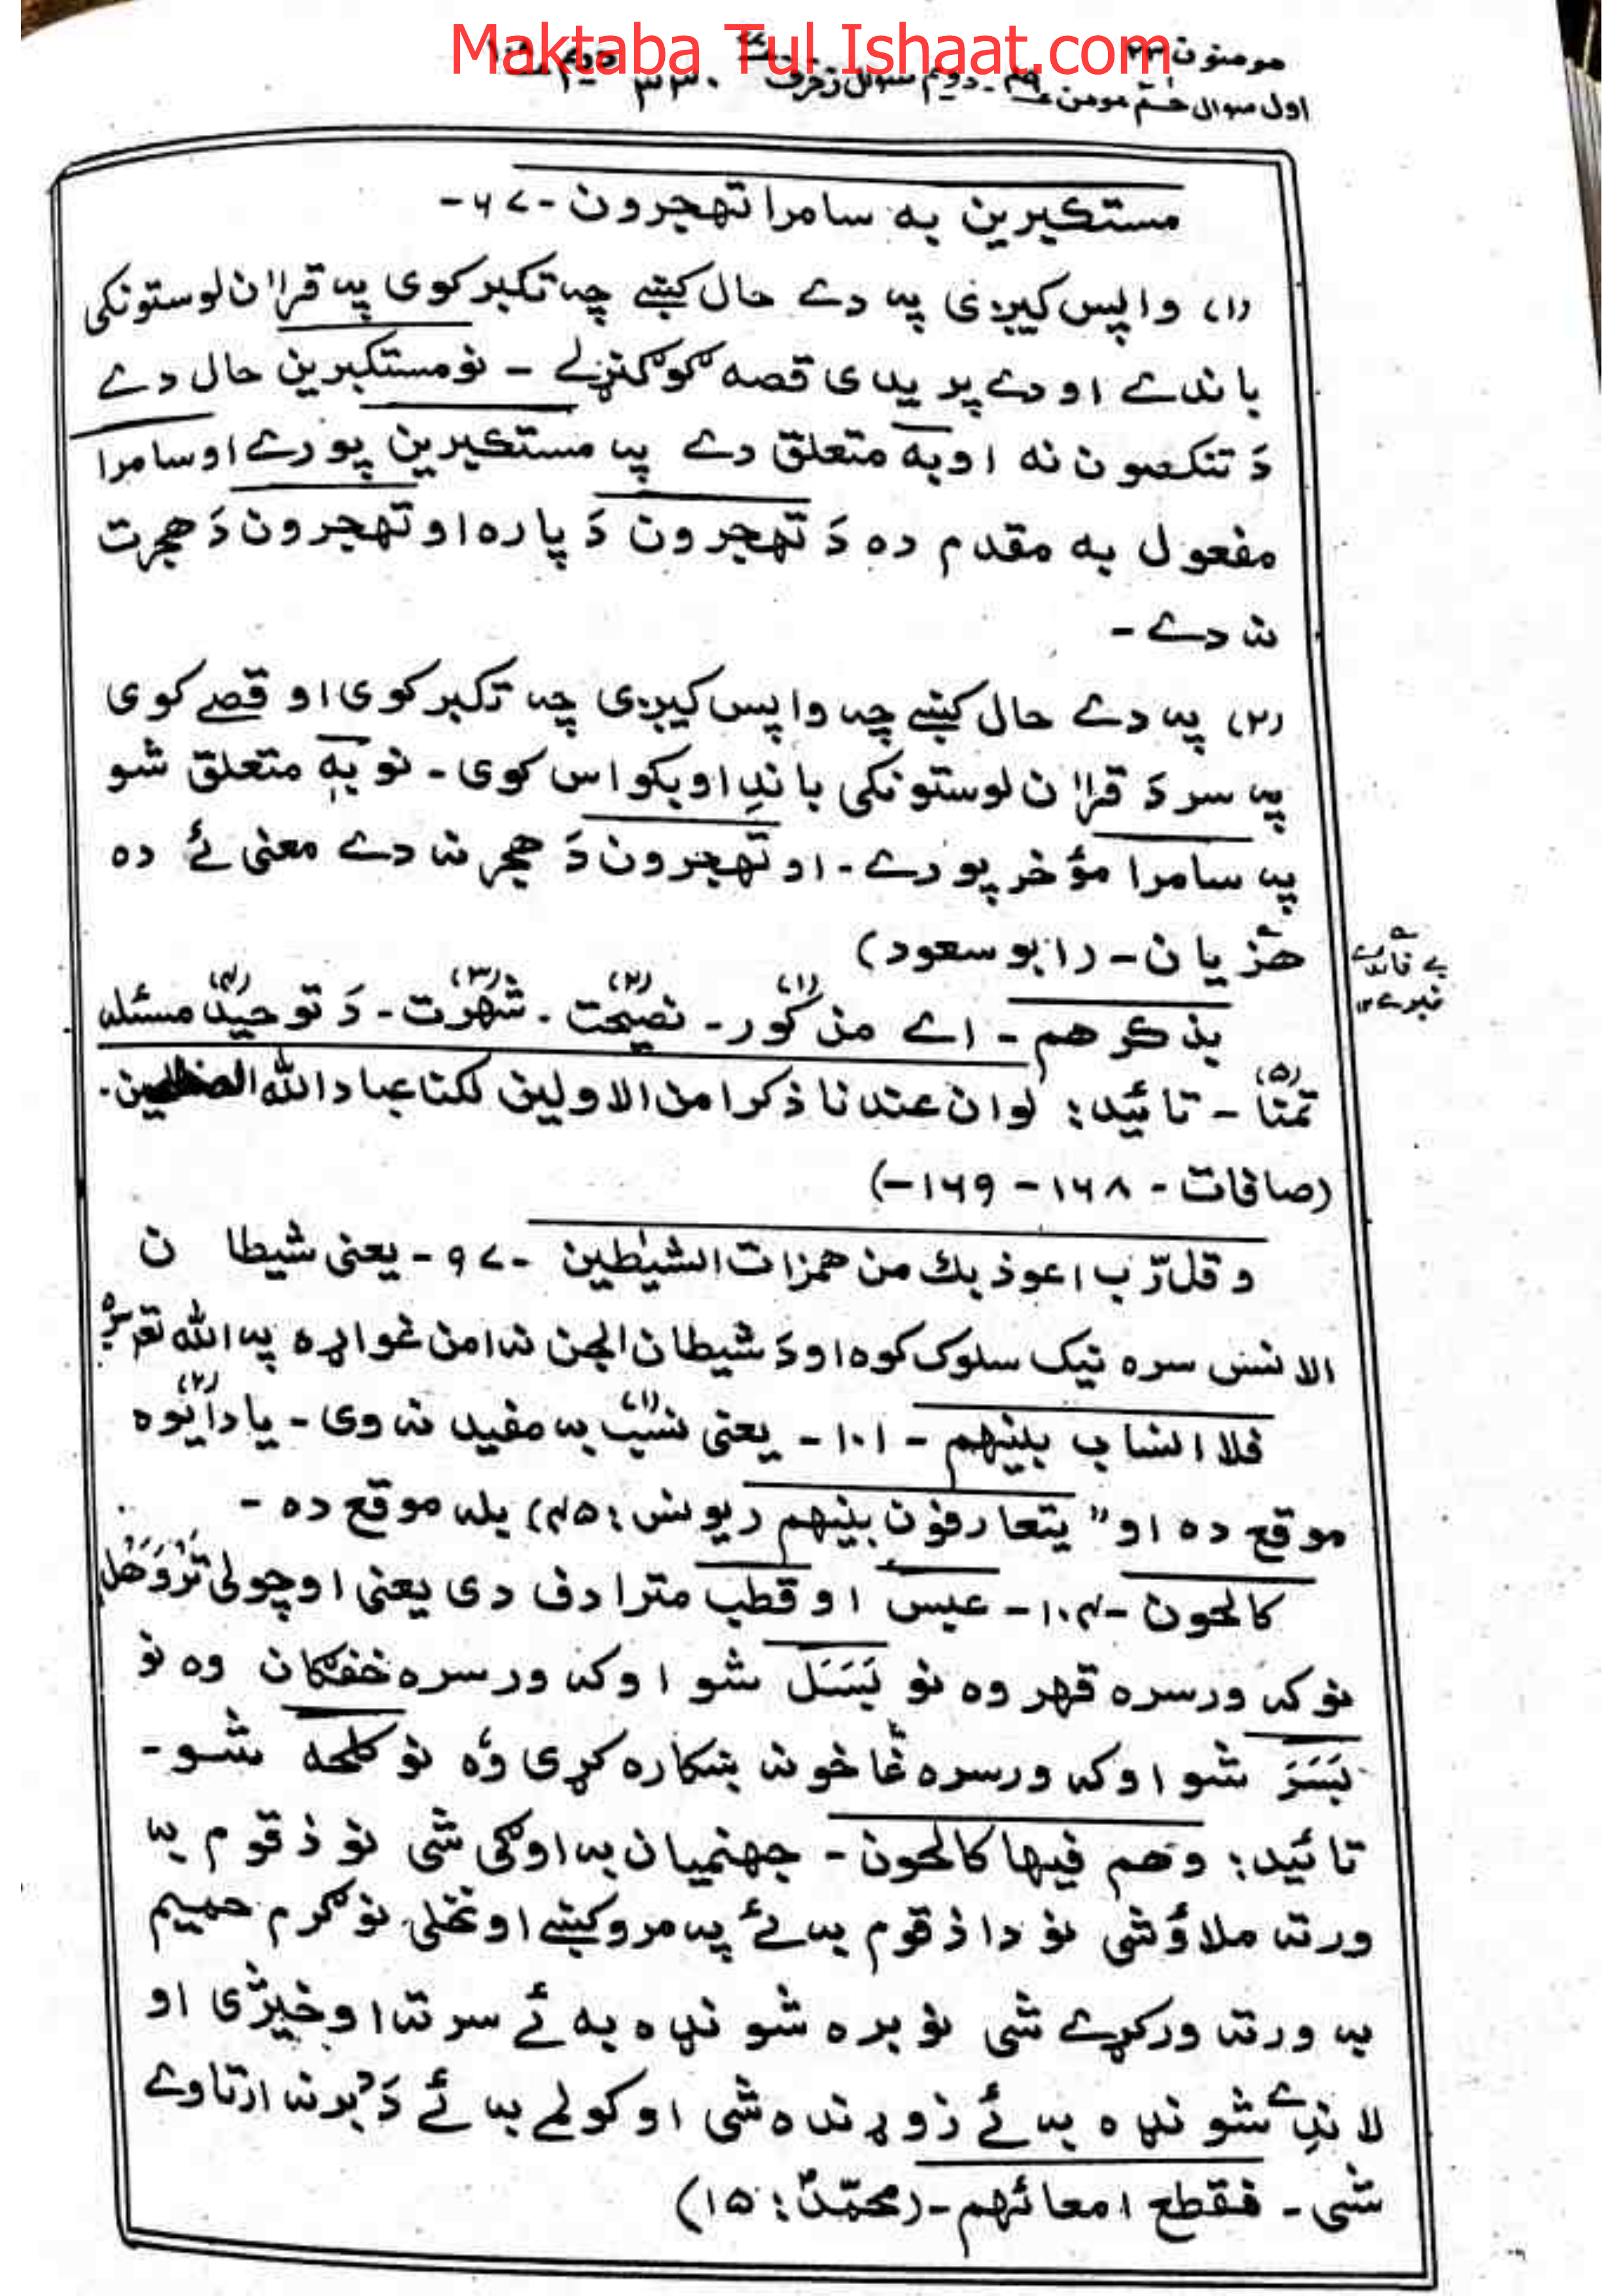 Maktaba Tul Ishaat.com
مومنون ۲۳
اول سوال ختم مومن ۴۹ - دویم سوال زخرف ۳۳۰
مستكبرين به سامرا تهجرون - ۶۷ -
(۱) واپس کیږی په دے حال کښے چه تکبر کوی په قراٰن لوستونکی
باندے او دے پریدی قصه ګو ګنړلے - نو مستکبرین حال دے
دَ تنکصون نه او به متعلق دے په مستکبرین پورے او سامرا
مفعول به مقدم ده دَ تهجرون دَ پاره او تهجرون دَ هجرت
نه دے -
(۲) په دے حال کښے چه واپس کیږی چه تکبر کوی او قصے کوی
په سر دَ قراٰن لوستونکی باندِ او بکواس کوی - نو بِه متعلق شو
په سامرا مؤخر پورے - او تهجرون دَ هجر نه دے معنی ئے ده
هذیان - (ابو سعود)
بے فائدے
خبرے ۱۲
بذکرهم - اے مذکور (۱) - نصیحت (۲) - شهرت (۳) - دَ توحید (۴) مسئله
تمنا (۵) - تائید: لو ان عندنا ذکرا من الاولین لکنا عباد الله المخلصین -
(صافات - ۱۶۸ - ۱۶۹ -)
وقل رّب اعوذ بك من همزات الشیٰطین - ۹۷ - یعنی شیطان
الانس سره نیک سلوک کوه او دَ شیطان الجن نه امن غواړه په الله تعالیٰ سره
فلا انساب بینهم - ۱۰۱ - یعنی نسب (۱) به مفید نه وی - یا دا یوه (۲)
موقع ده او "یتعارفون بینهم (یونس: ۴۵) بله موقع ده -
کالحون - ۱۰۴ - عبس او قطب مترادف دی یعنی اوچولی تَرْوَهَل
نو که ورسره قهر وه نو بَسَلَ شو او که ورسره خفګان وه نو
بَسَرَ شو او که ورسره غاخونه ښکاره کړی وه نو کلحه شو -
تائید: وهم فیها کالحون - جهنمیان به اوګی شی نو ذقوم به
ورته ملاؤشی نو دا ذقوم به ئے په مرو کښے اونخلی نو ګرم حمیم
به ورته ورکړے شی نو بره شونډه به ئے سر ته اوخیژی او
لاندِے شونډه به ئے زوړنده شی او کولمے به ئے دَ دُبر نه ارتاوے
شی - فقطع امعائهم - (محمّد: ۱۵)